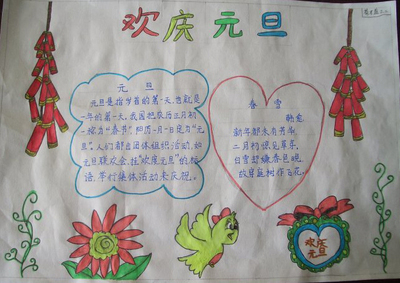 欢庆元旦
元 旦
元旦是指岁首的第一天,也就是
一年的第一天,我国把农历正月初
一称为“春节”,阳历一月一日定为“元
旦”,人们都由团体组织活动,如
元旦联欢会,挂“欢庆元旦”的标
语,举行集体活动来庆祝。
春 雪
韩愈
新年都未有芳华,
二月初惊见草芽。
白雪却嫌春色晚,
故穿庭树作飞花。
欢庆
元旦